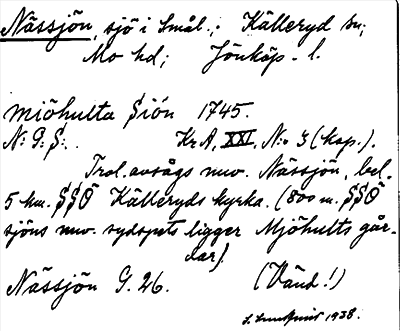 Nässjön, sjö i Smål.; Källeryd sn;
Mo hd; Jönköp. l.
miöhulta Siön 1745.
N: P: S: KrA, XXI, N:o 3 (kop.).
Trol. avsågs nuv. Nässjön, bel.
5 km. SSÖ Källeryds kyrka. (800 m. SSÖ
sjöns nuv. sydspets ligger Mjöhults går-
dar).
Nässjön G. 26. (Vänd!)
1938.